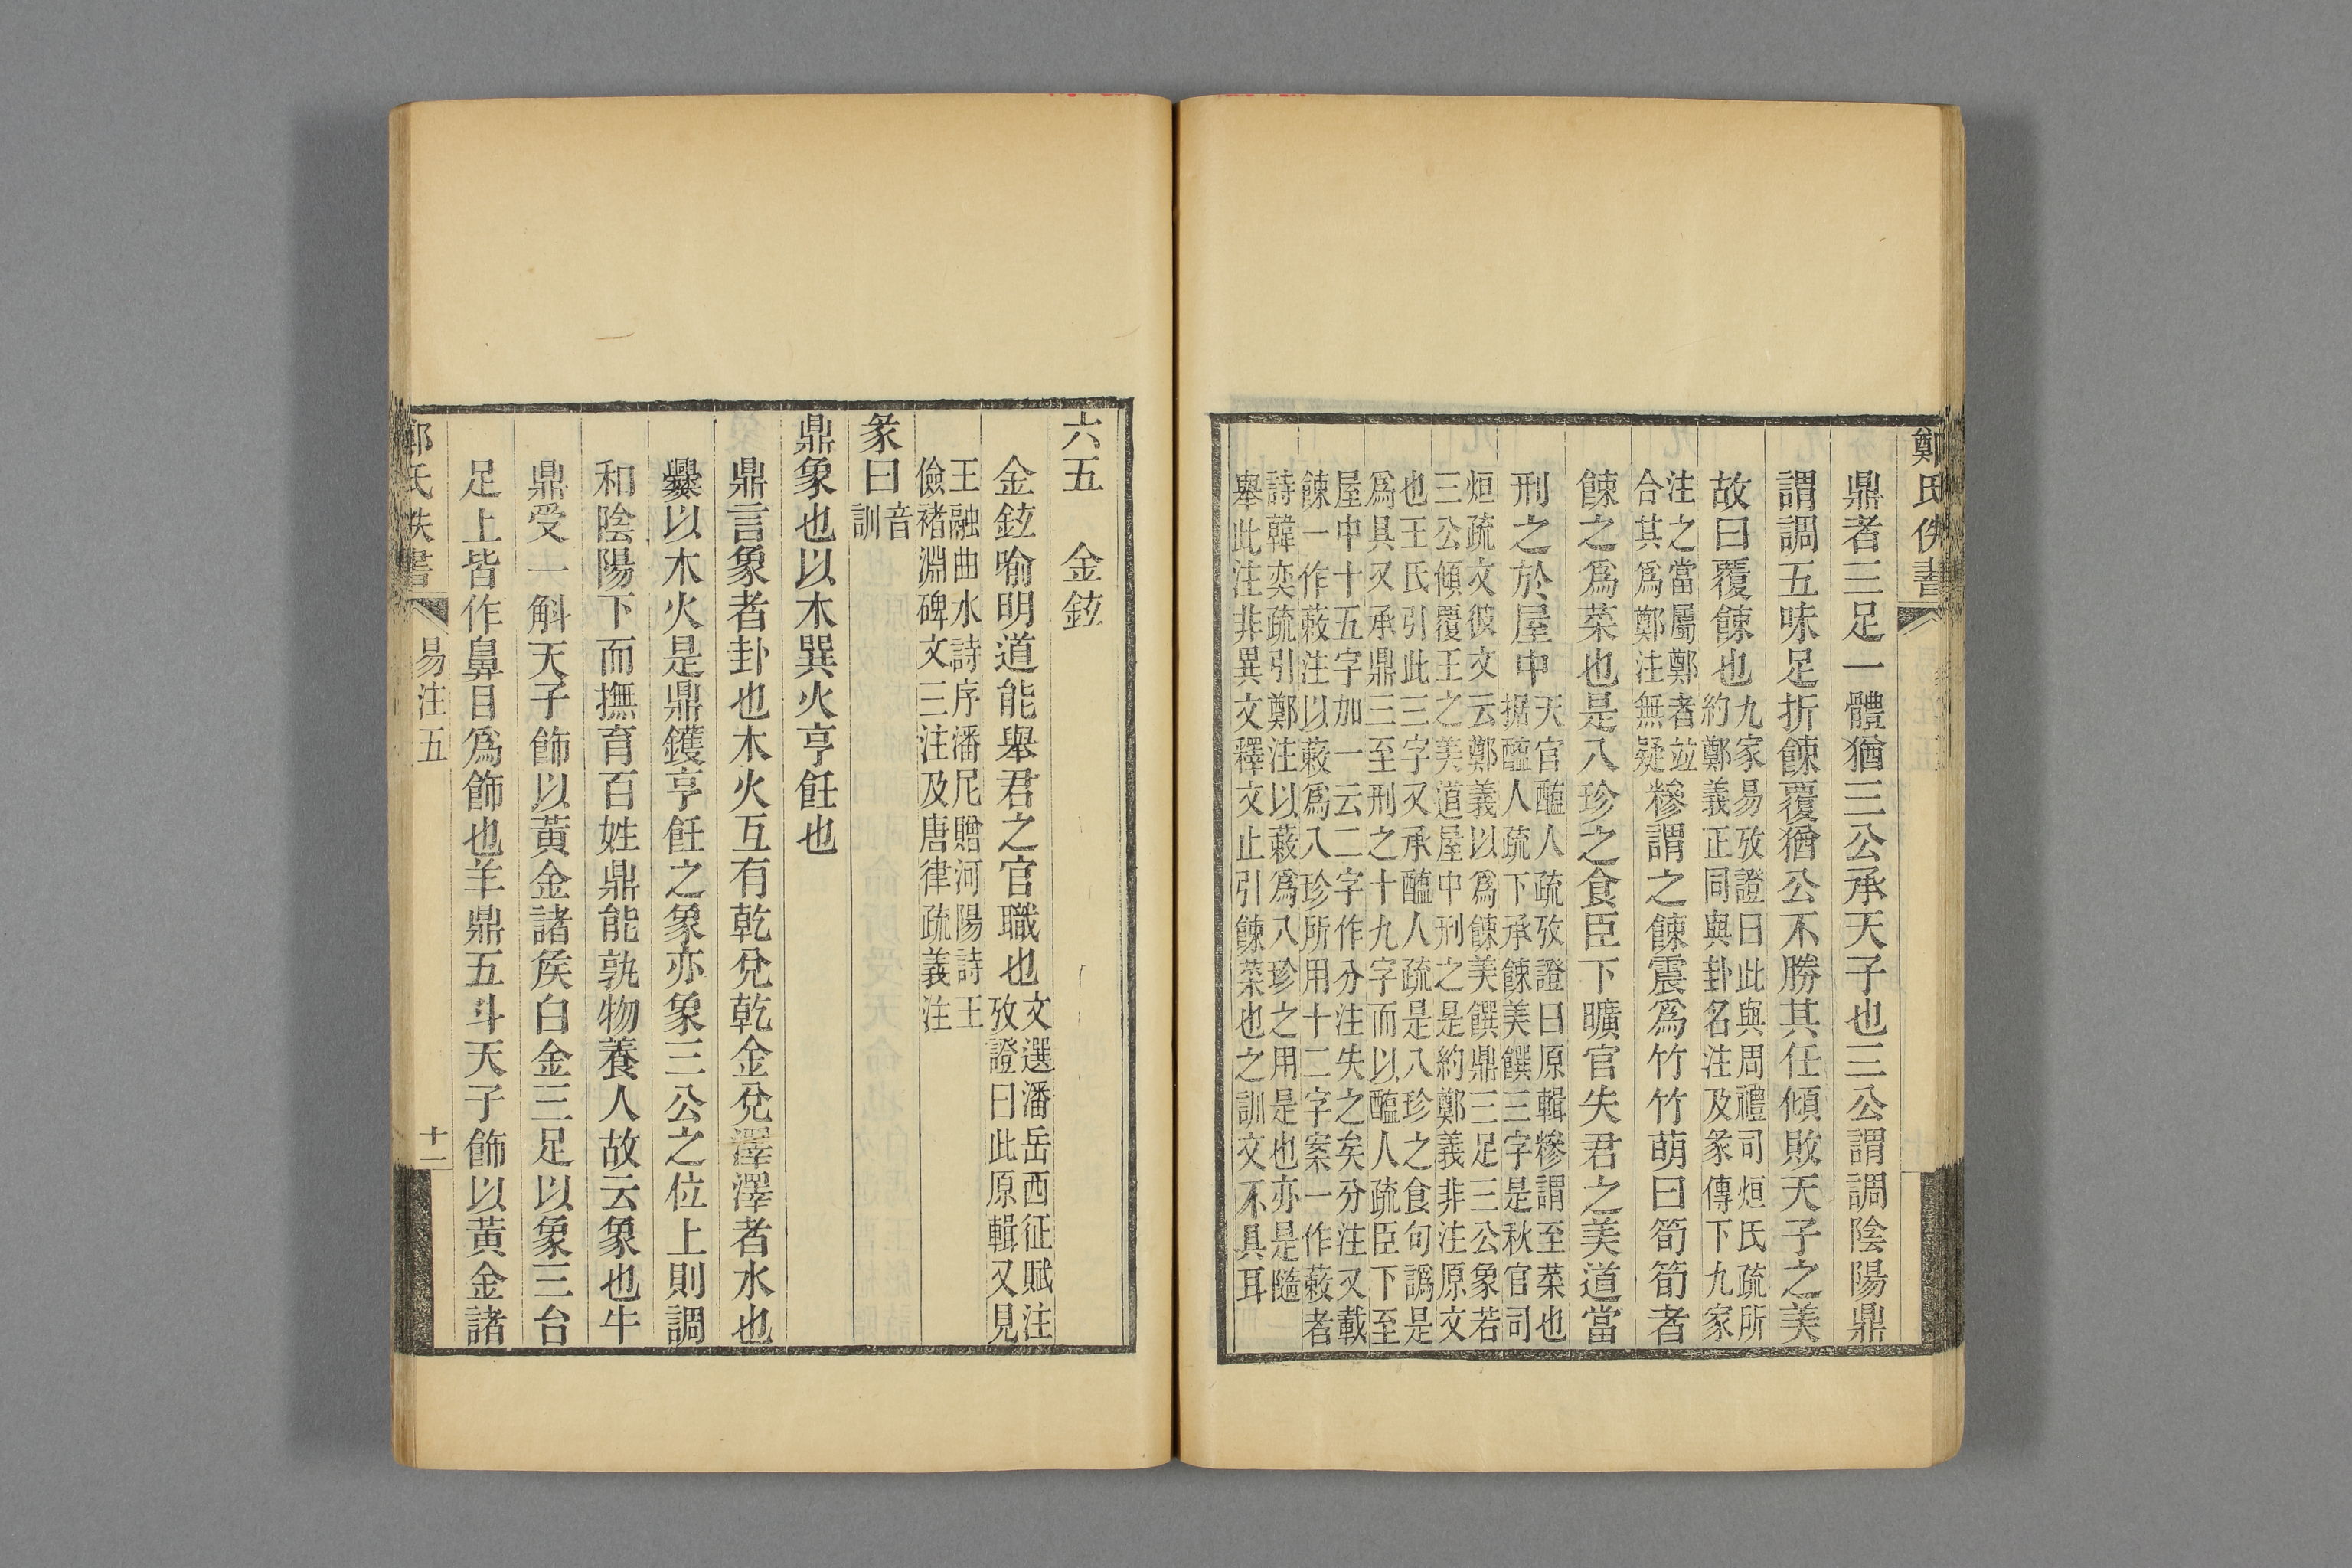 鄭氏佚書
鼎者三足一體猶三公承天子也三公謂調陰陽鼎
謂調五味足折餗覆猶公不勝其任傾敗天子之美
故曰覆餗也九家易攷證曰此與周禮司烜氏疏所
約鄭義正同與卦名注及彖傳下九家
注之當屬鄭者竝
合其爲鄭注無疑糝謂之餗震爲竹竹萌曰筍筍者
餗之爲菜也是八珍之食臣下曠官失君之美道當
刑之於屋中天官醢人疏攷證曰原輯糝謂至菜也
据醢人疏下承餗美饌三字是秋官司
烜疏文彼文云鄭義以爲餗美饌鼎三足三公象若
三公傾覆王之美道屋中刑之是約鄭義非注原文
也王氏引此三字又承醢人疏是八珍之食句譌是
爲具又承鼎三至刑之十九字而以醢人疏臣下至
屋中十五字加一云二字作分注失之矣分注又載
餗一作蔌注以蔌爲八珍所用十二字案一作蔌者
詩韓奕疏引鄭注以蔌爲八珍之用是也亦是隨
舉此注非異文釋文止引餗菜也之訓文不具耳
六五　金鉉
金鉉喻明道能舉君之官職也文選潘岳西征賦注
攷證曰此原輯又見
王融曲水詩序潘尼贈河陽詩王
儉褚淵碑文三注及唐律疏義注
彖曰音
訓
鼎象也以木巽火亨飪也
鼎言象者卦也木火互有乾兌乾金兌澤澤者水也
爨以木火是鼎鑊亨飪之象亦象三公之位上則調
和陰陽下而撫育百姓鼎能孰物養人故云象也牛
鼎受一斛天子飾以黃金諸矦白金三足以象三台
足上皆作鼻目爲飾也羊鼎五斗天子飾以黃金諸
鄭氏佚書　易注五　十一